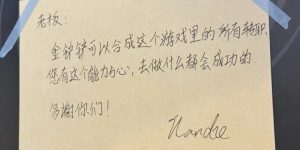 老板:
金铲铲可以合成这个游戏里的所有转职
您有这个能力与心,去做什么都会成功的
多谢你们!